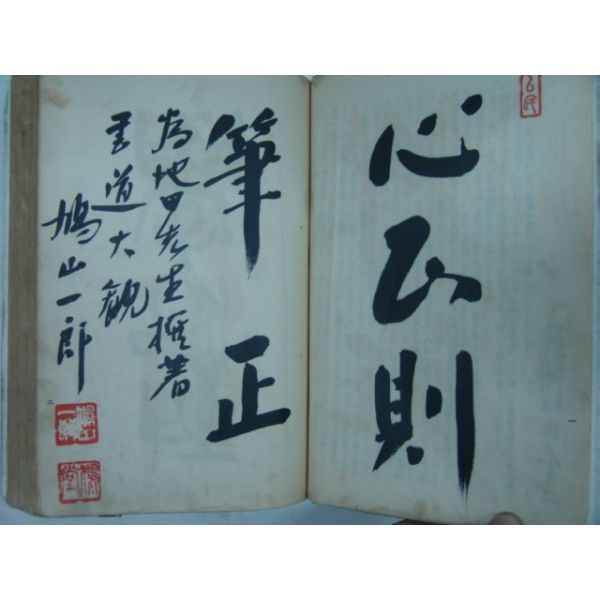 心正則
筆正
為池田先生撰著
書道大観
鳩山一郎